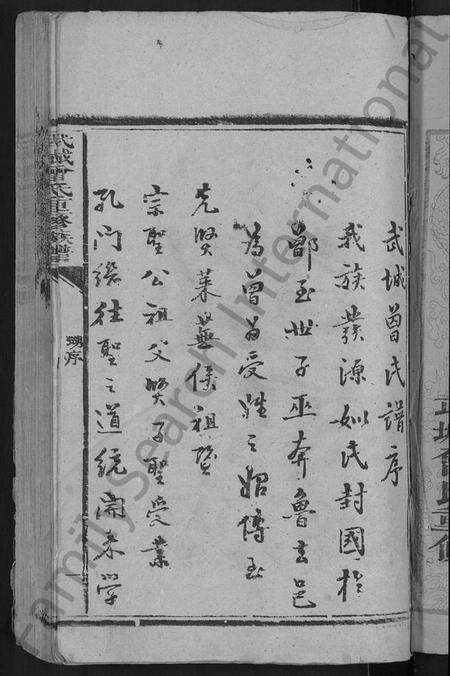 武城曾氏譜序
我族發源姒氏封國於
鄫至世子巫奔魯去邑
為曾曾受姓之始傳至
先賢萊蕪侯祖暨
宗聖公祖父賢子聖受業
孔門繼往聖之道統開來學
武城曾氏重修族譜
序
FamilySearch International